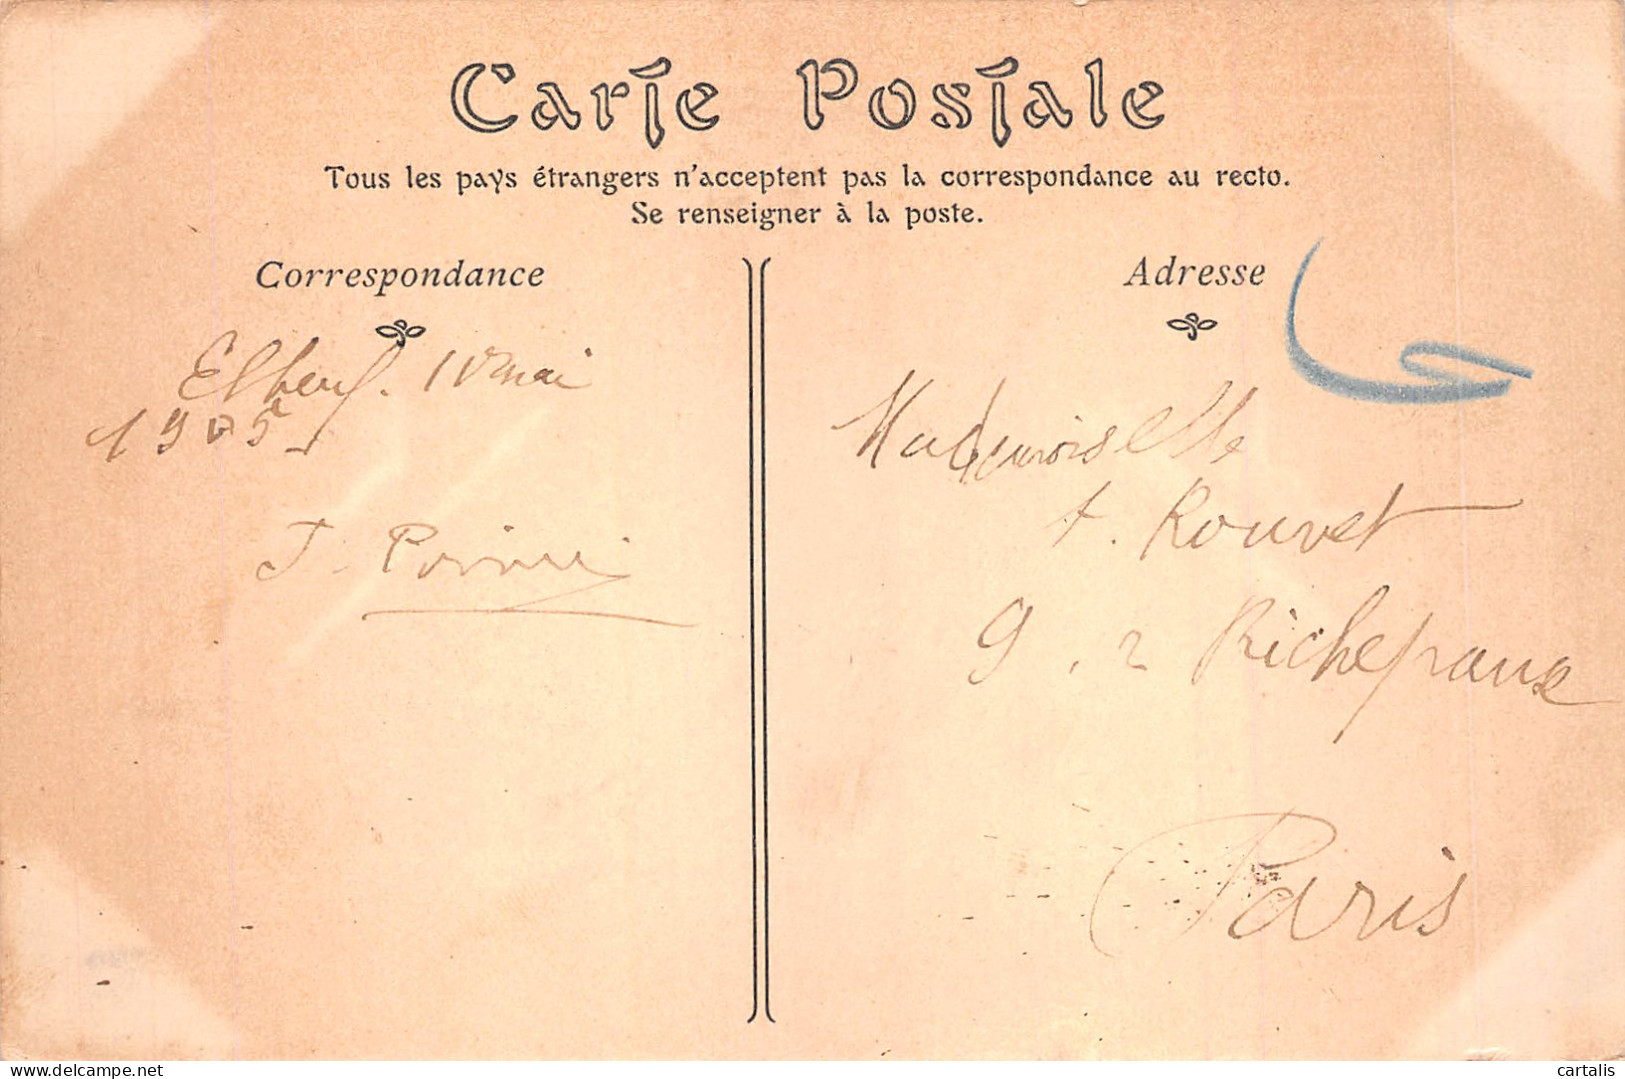 Carte Postale
Tous les pays étrangers n'acceptent pas la correspondance au recto.
Se renseigner à la poste.
Correspondance
Elbeuf. 10 mai
1905
J.
Adresse
Mademoiselle
t. Rouvet
9, r Richepanse
Paris
delcampe.net
cartalis